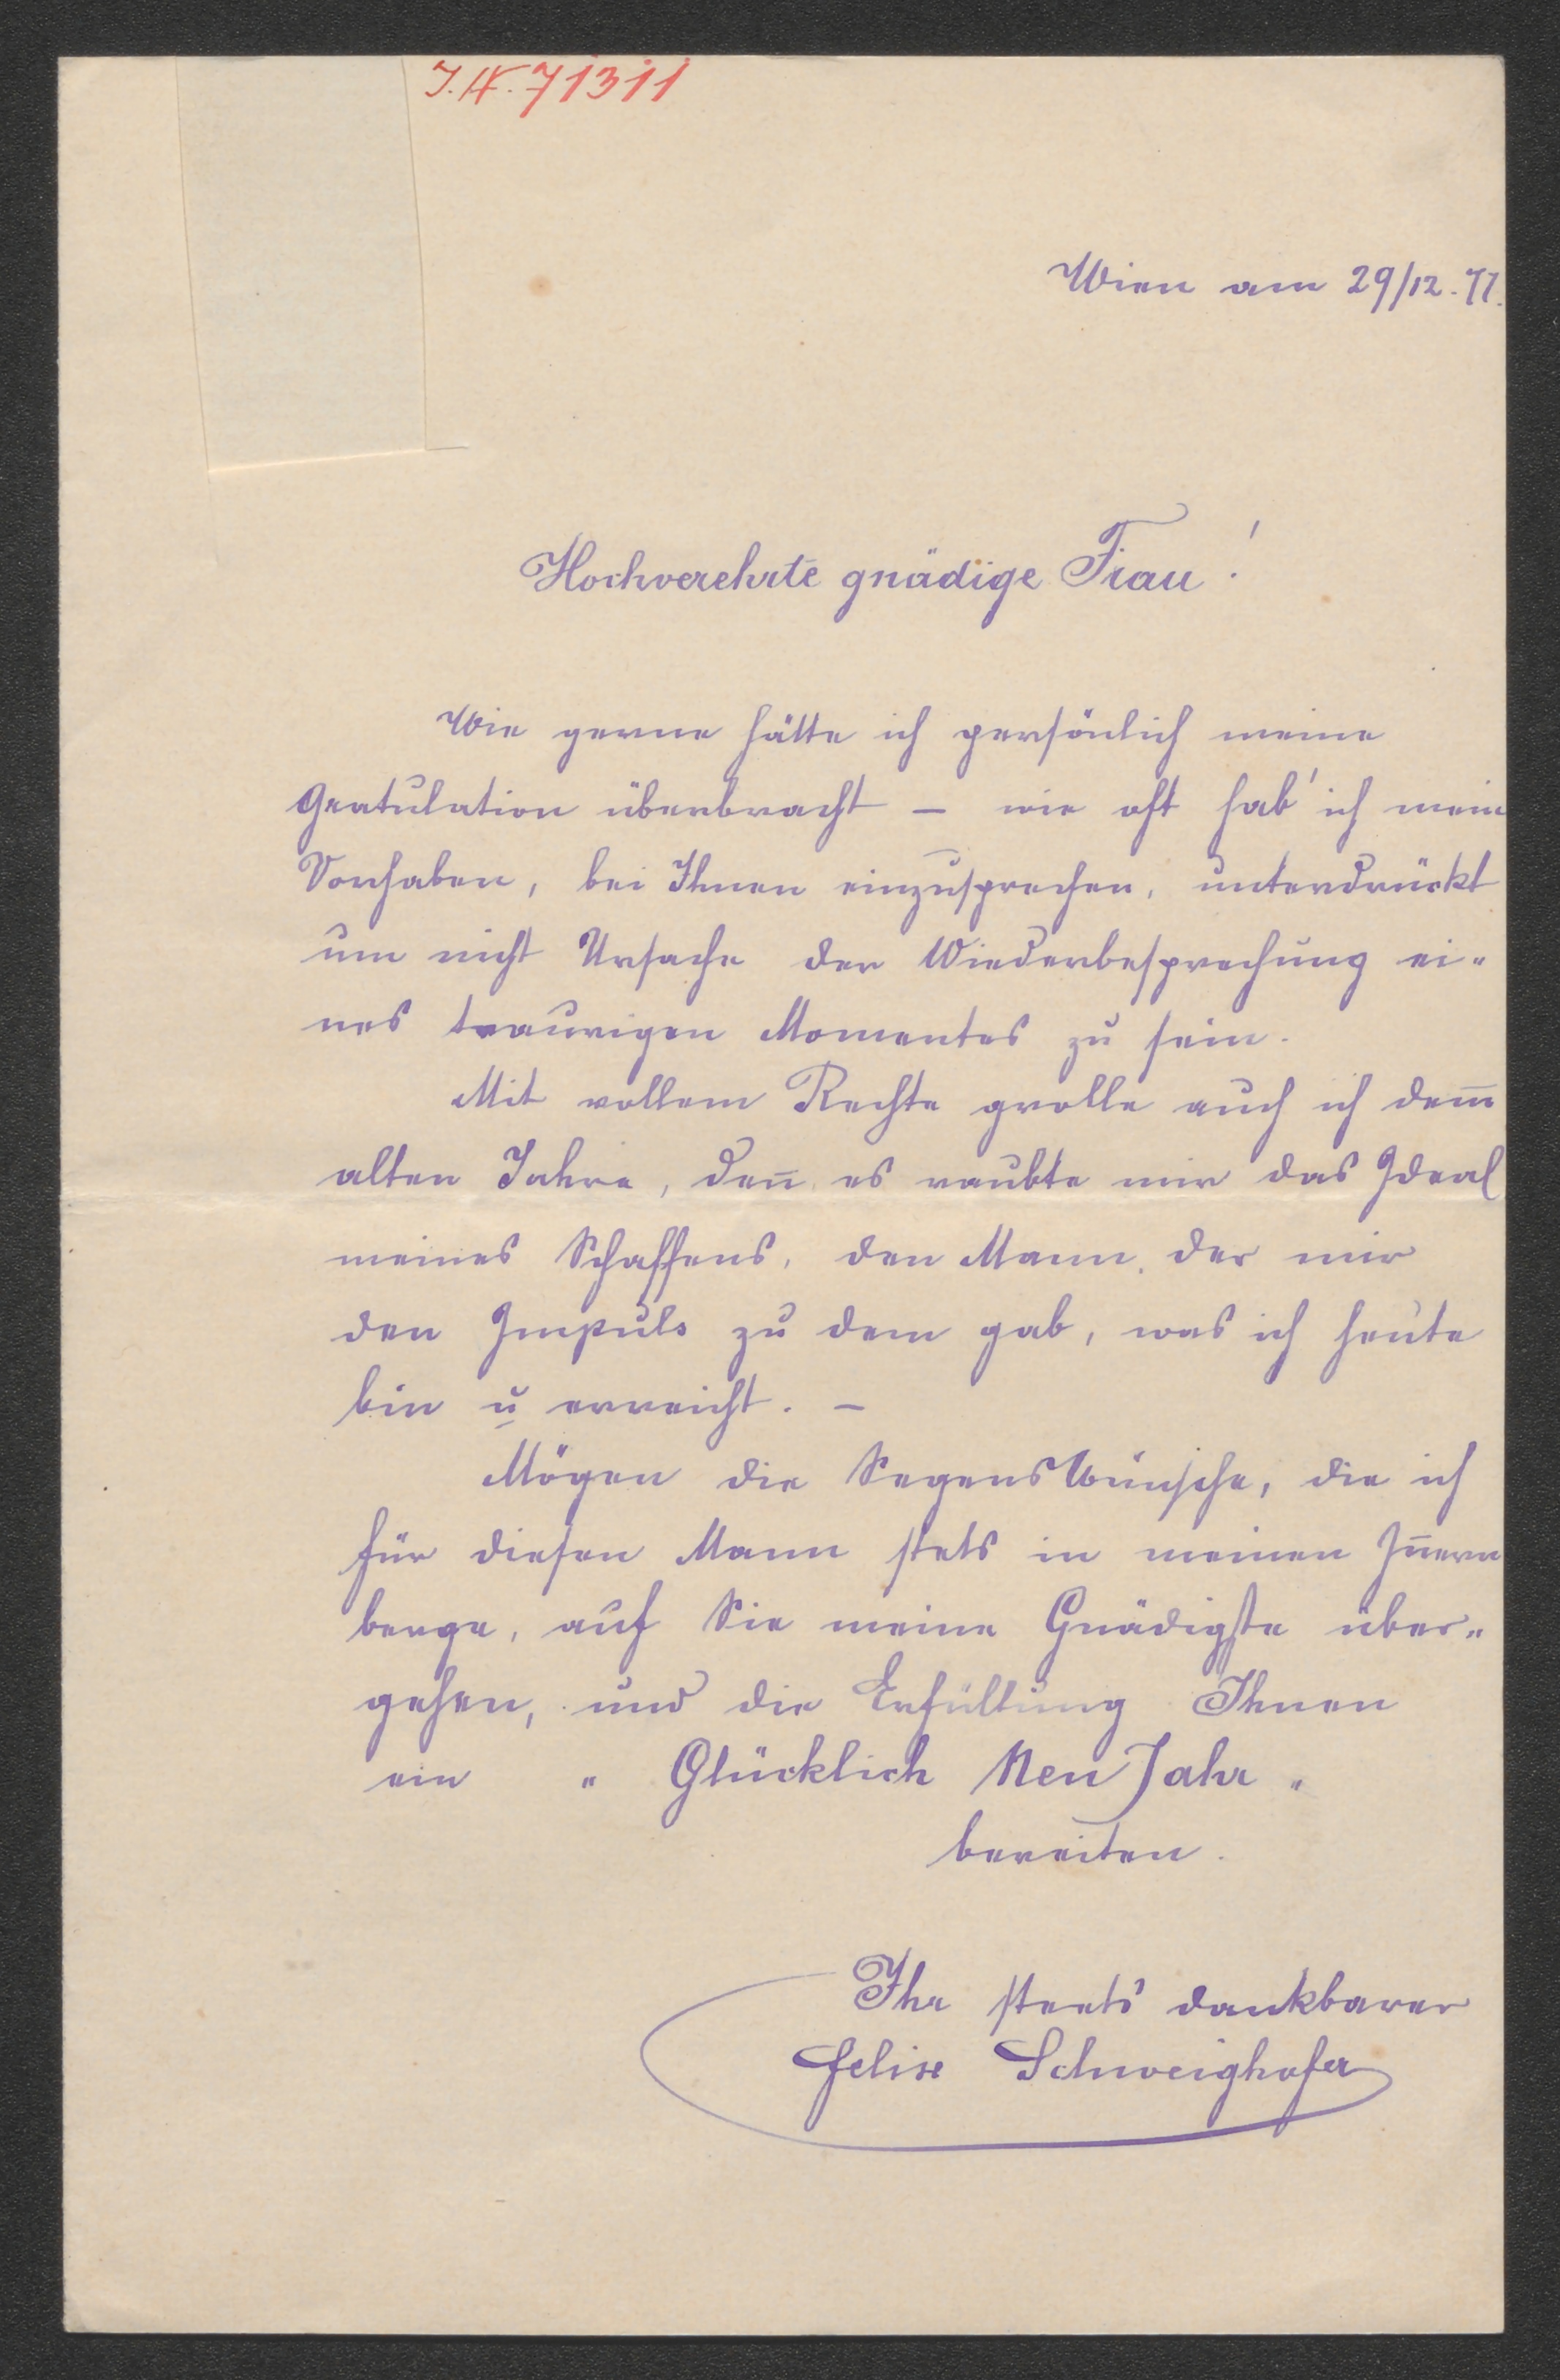 J.N. 71311
Wien am 29/12. 77.
Hochverehrte gnädige Frau!
Wie gerne hätte ich persönlich meine
Gratulation überbracht – wie oft hab' ich mein
Vorhaben, bei Ihnen einzusprechen, unterdrückt
um nicht Ursache der Wiederbesprechung ei„
nes traurigen Momentes zu sein.
Mit vollem Rechte grolle auch ich dem̅
alten Jahre, den̅ es raubte mir das Ideal
meines Schaffens, den Mann, der mir
den Impuls zu dem gab, was ich heute
bin u erreicht. –
Mögen die Segenswünsche, die ich
für diesen Mann stets in meinen In̅ern
berge, auf Sie meine Gnädigste über„
gehen, und die Erfüllung Ihnen
ein „ Glücklich Neu Jahr „
bereiten.
Ihr steets dankbarer
Felix Schweighofer